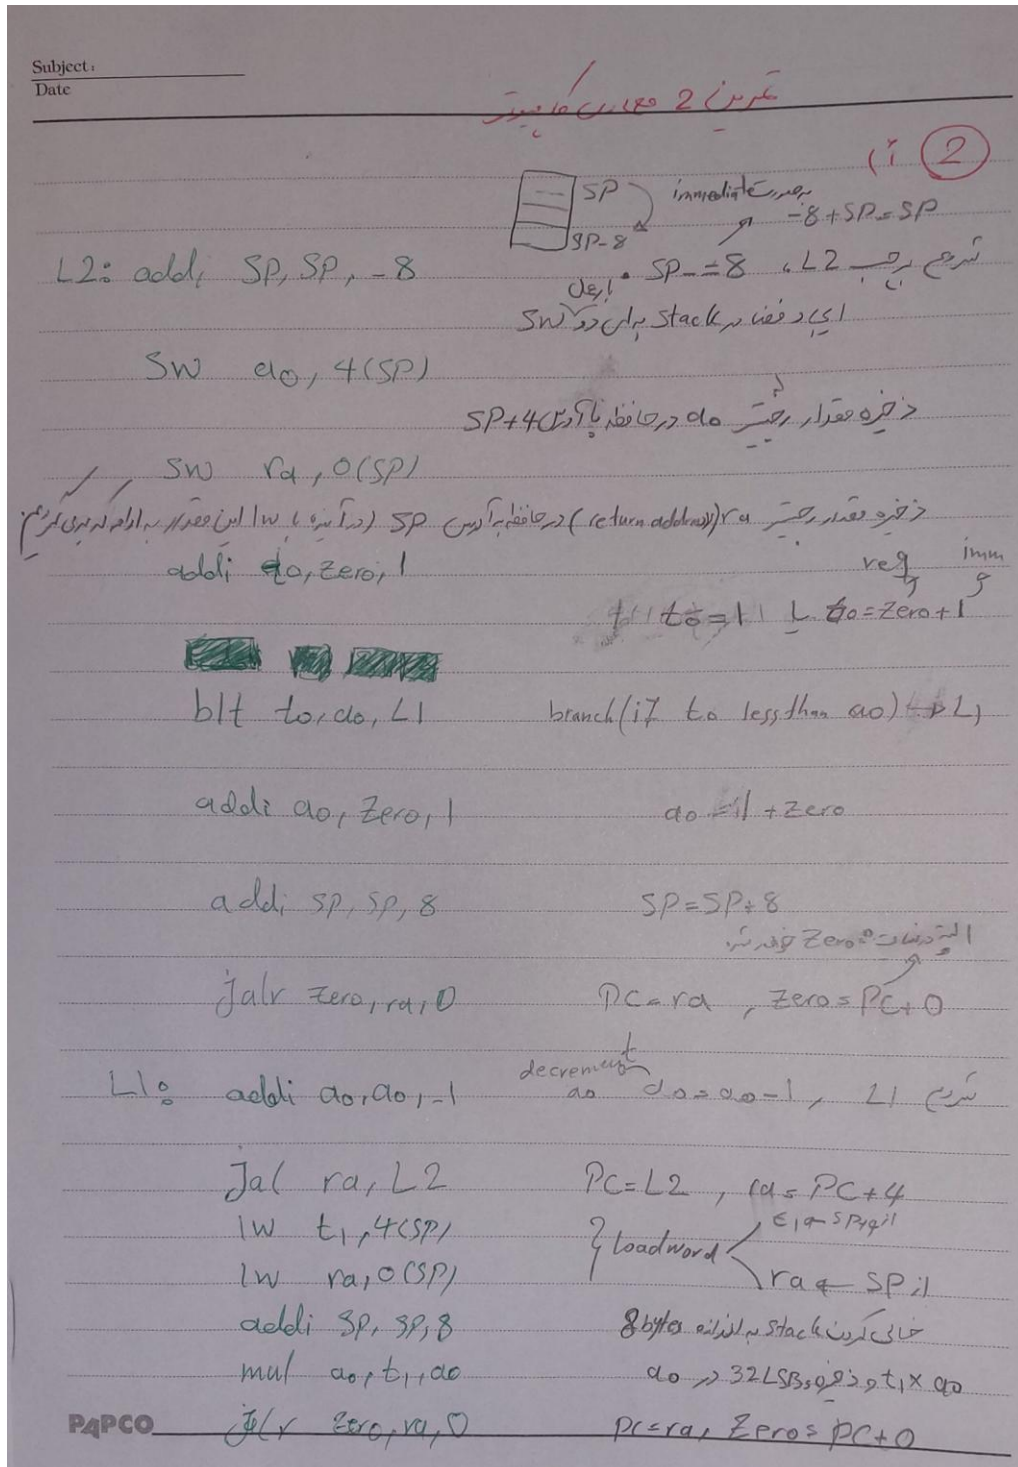 Subject:
Date
تمرین 2 معماری کامپیوتر
2 آ)
SP immediate بصورت
-8+SP=SP
SP-8
L2: addi SP, SP, -8 SP-=8 ، L2 شرح برچسب
ایجاد فضا در Stack برای دو SW
SW a0, 4(SP)
ذخیره مقدار رجیستر a0 در حافظه با آدرس SP+4
SW ra, 0(SP)
ذخیره مقدار رجیستر ra (return address) در حافظه به آدرس SP (در آینده با lw این مقدار
addi t0, zero, 1 reg imm
t0=1 یا t0=Zero+1
blt t0, a0, L1 branch(if t0 less than a0) → L1
addi a0, Zero, 1 a0 = 1 + zero
addi SP, SP, 8 SP=SP+8
البته zero
jalr zero, ra, 0 PC=ra , zero=PC+0
decrement
L1: addi a0, a0, -1 a0 a0=a0-1 , L1 شرح
Jal ra, L2 PC=L2 , ra=PC+4
lw t1, 4(SP) loadword t1 ← SP+4 از
lw ra, 0(SP) ra ← SP از
addi SP, SP, 8 خالی کردن Stack به اندازه 8 bytes
mul a0, t1, a0 t1 × a0 و ذخیره 32 LSB در a0
PAPCO jalr zero, ra, 0 PC=ra, Zero=PC+0